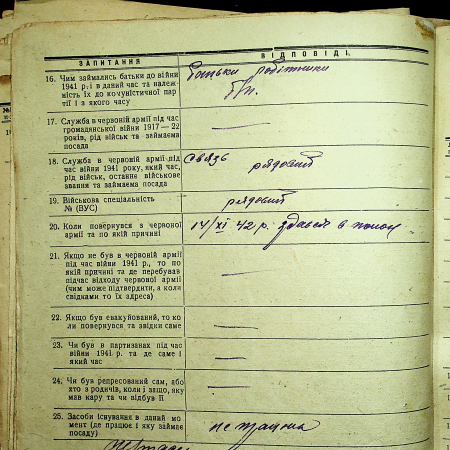 ЗАПИТАННЯ
ВІДПОВІДІ
16. Чим займались батьки до війни
1941 р. і в даний час та належ-
ність їх до комуністичної пар-
тії і з якого часу
батьки робітники
б/п.
17. Служба в червоній армії під час
громадянської війни 1917—22
років, рід військ та займаєма
посада
—
18. Служба в червоній армії під
час війни 1941 року, який час,
рід військ, останнє військове
звання та займаєма посада
связь
рядовий
19. Військова спеціяльність
№ (ВУС)
рядовий
20. Коли повернувся з червоної
армії та по якій причині
14/XI 42 р. здався в полон
21. Якщо не був в червоній армії
під час війни 1941 р., то по
якій причині та де перебував
підчас відходу червоної армії
(чим може підтвердити, а коли
свідками то їх адреса)
—
22. Якщо був евакуйований, то ко-
ли повернувся та звідки саме
—
23. Чи був в партизанах під час
війни 1941 р. та де саме і
який час
—
24. Чи був репресований сам, або
хто з родичів, коли і защо, яку
мав кару та чи відбув її
—
25. Засоби існування в даний мо-
мент (де працює і яку займає
посаду)
не працює